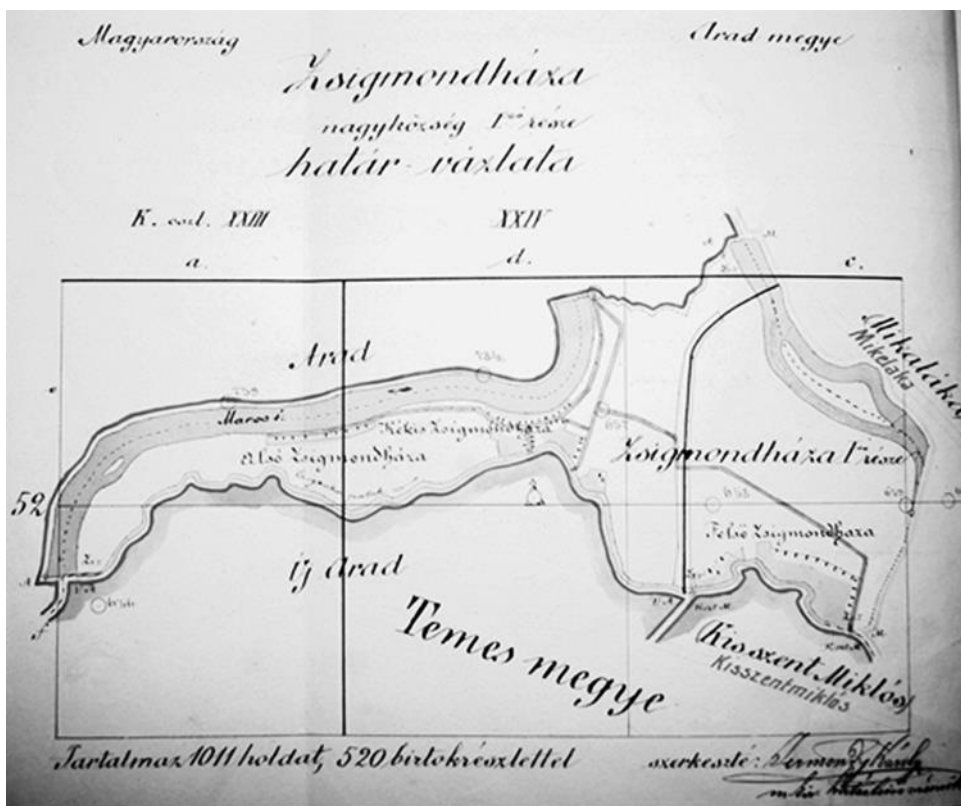 Magyarország
Arad megye
Zsigmondháza
nagyközség I ső része
határ-vázlata
K. oszt. XXIII
XXIV
a.
d.
c.
Arad
Maros f.
Kékis Zsigmondháza
Alsó Zsigmondháza
Zsigmondháza I ső része
Mikaláka
Mikelaka
52
Felső Zsigmondháza
Új Arad
Temes megye
(Kisszent Miklós)
Kisszentmiklós
Tartalmaz 1011 holdat, 520 birtokrészlettel
szerkesté: